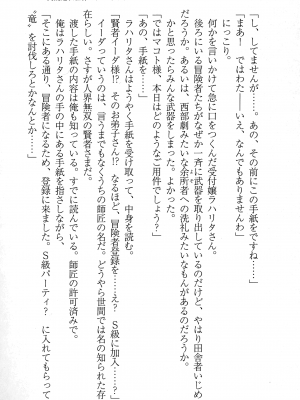 「し、してませんが……。あの、その前にこの手紙をですね……」
「まあ！　ではわた――いえ、なんでもありませんわ」
　にっこり。
　何かを言いかけて急に口をつぐんだ受付嬢ラハリタさん。
　後ろにいる冒険者たちがなぜか一斉に武器を取り出しているのだけど、やはり田舎者いじめ
だろうか。あるいは、西部劇みたいな余所者への洗礼みたいなものがあるのだろうか。
　かと思ったらみんな武器をしまった。よかった。
「ではマコト様、本日はどのようなご用件でしょう？」
「あの、手紙を……」
　ラハリタさんはようやく手紙を受け取って、中身を読む。
「賢者イーダ様！？　そのお弟子さん！？　なるほど、冒険者登録を……え？　Ｓ級に加入……？」
　渡した手紙の内容は俺も知っている。すでに読んでいる。師匠の許可済みで。
　イーダってのは、言うまでもなくうちの師匠の名だ。どうやら世間では名の知られた存
在らしい。さすが人界無双の賢者さまだ。
　俺はラハリタさんの手の中にある手紙を指さしながら、
「そこにある通り、冒険者になるため、登録に来ました。Ｓ級パーティ？　に入れてもらって
〝竜〟を討伐しろとかなんとか……」